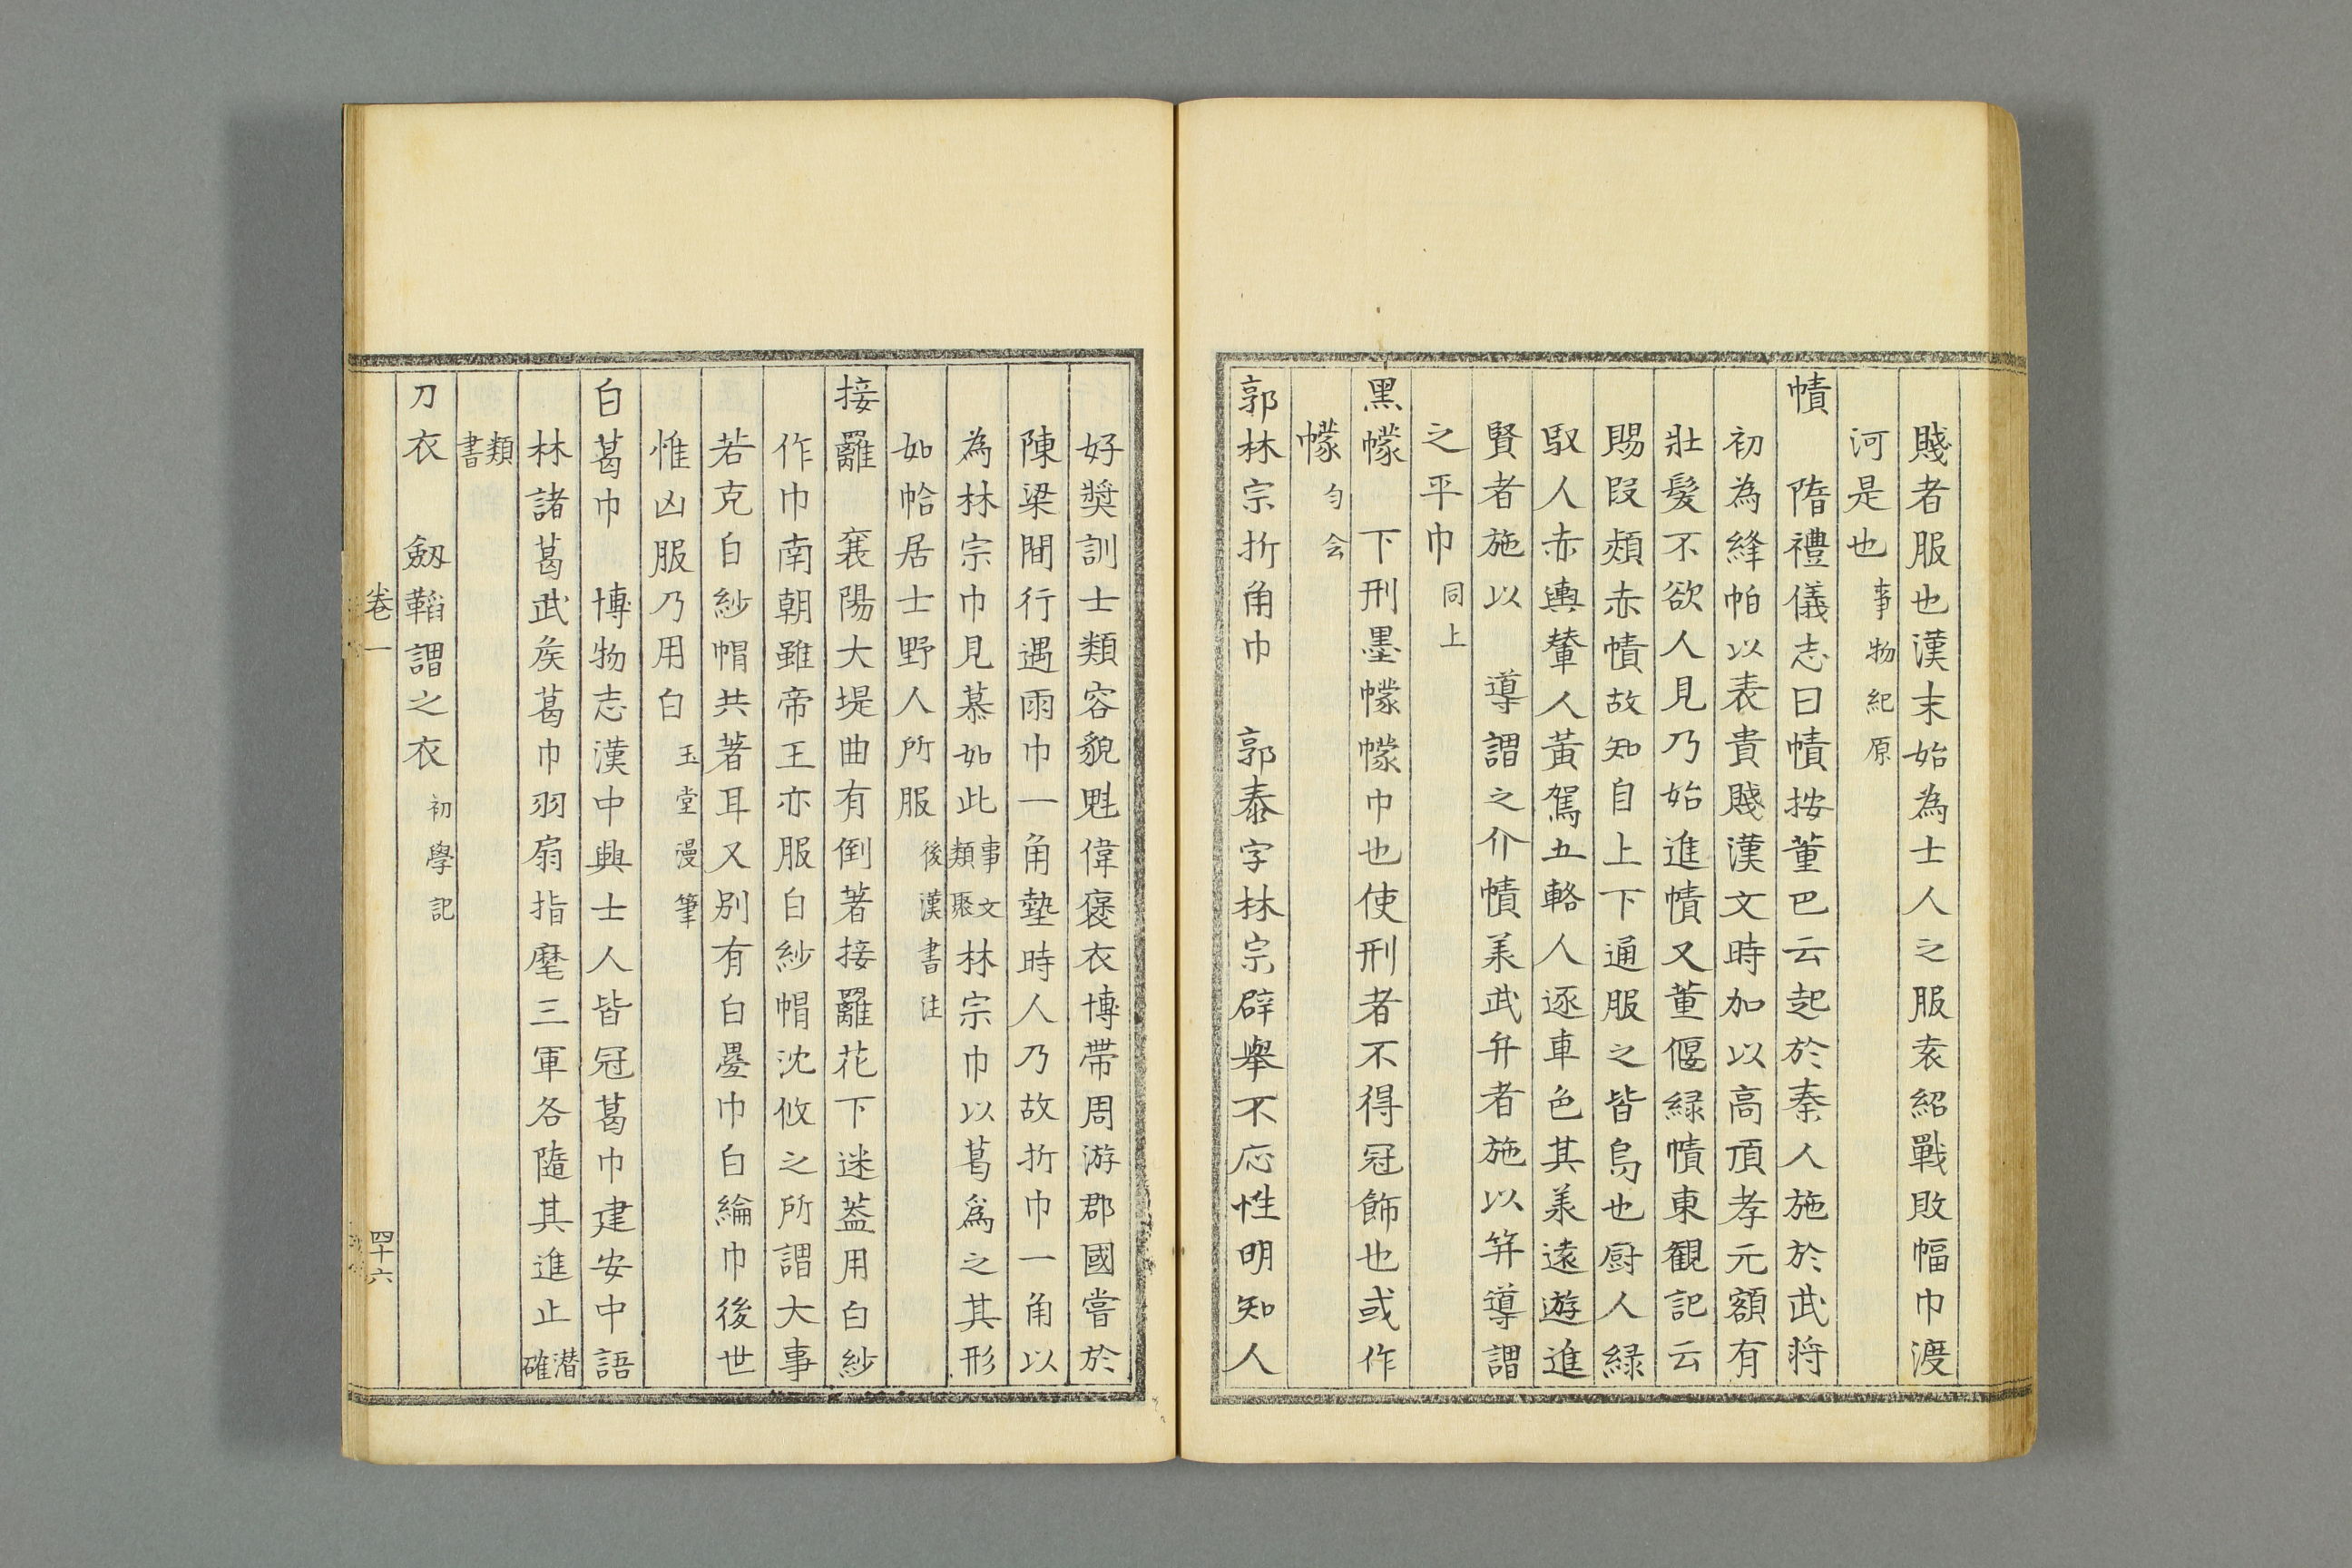 賤者服也漢末始為士人之服袁紹戰敗幅巾渡
河是也 事物紀原
幘 隋禮儀志曰幘按董巴云起於秦人施於武将
初為絳帕以表貴賤漢文時加以高頂孝元額有
壯髪不欲人見乃始進幘又董偃緑幘東観記云
賜段頬赤幘故知自上下通服之皆烏也厨人緑
馭人赤輿輦人黃駕五輅人逐車色其羕遠遊進
賢者施以 導謂之介幘羕武弁者施以笄導謂
之平巾 同上
黒幪 下刑墨幪幪巾也使刑者不得冠飾也或作
幪 匀会
郭林宗折角巾 郭泰字林宗辟舉不応性明知人
好奨訓士類容貌魁偉褒衣博帶周游郡國嘗於
陳梁間行遇雨巾一角墊時人乃故折巾一角以
為林宗巾見慕如此 事文類聚 林宗巾以葛爲之其形
如帢居士野人所服 後漢書注
接䍦 襄陽大堤曲有倒著接䍦花下迷葢用白紗
作巾南朝雖帝王亦服白紗帽沈攸之所謂大事
若克白紗帽共著耳又別有白疊巾白綸巾後世
惟凶服乃用白 玉堂漫筆
白葛巾 博物志漢中興士人皆冠葛巾建安中語
林諸葛武矦葛巾羽扇指麾三軍各隨其進止 潜確
類書
刀衣 劔鞱謂之衣 初學記
卷一
四十六